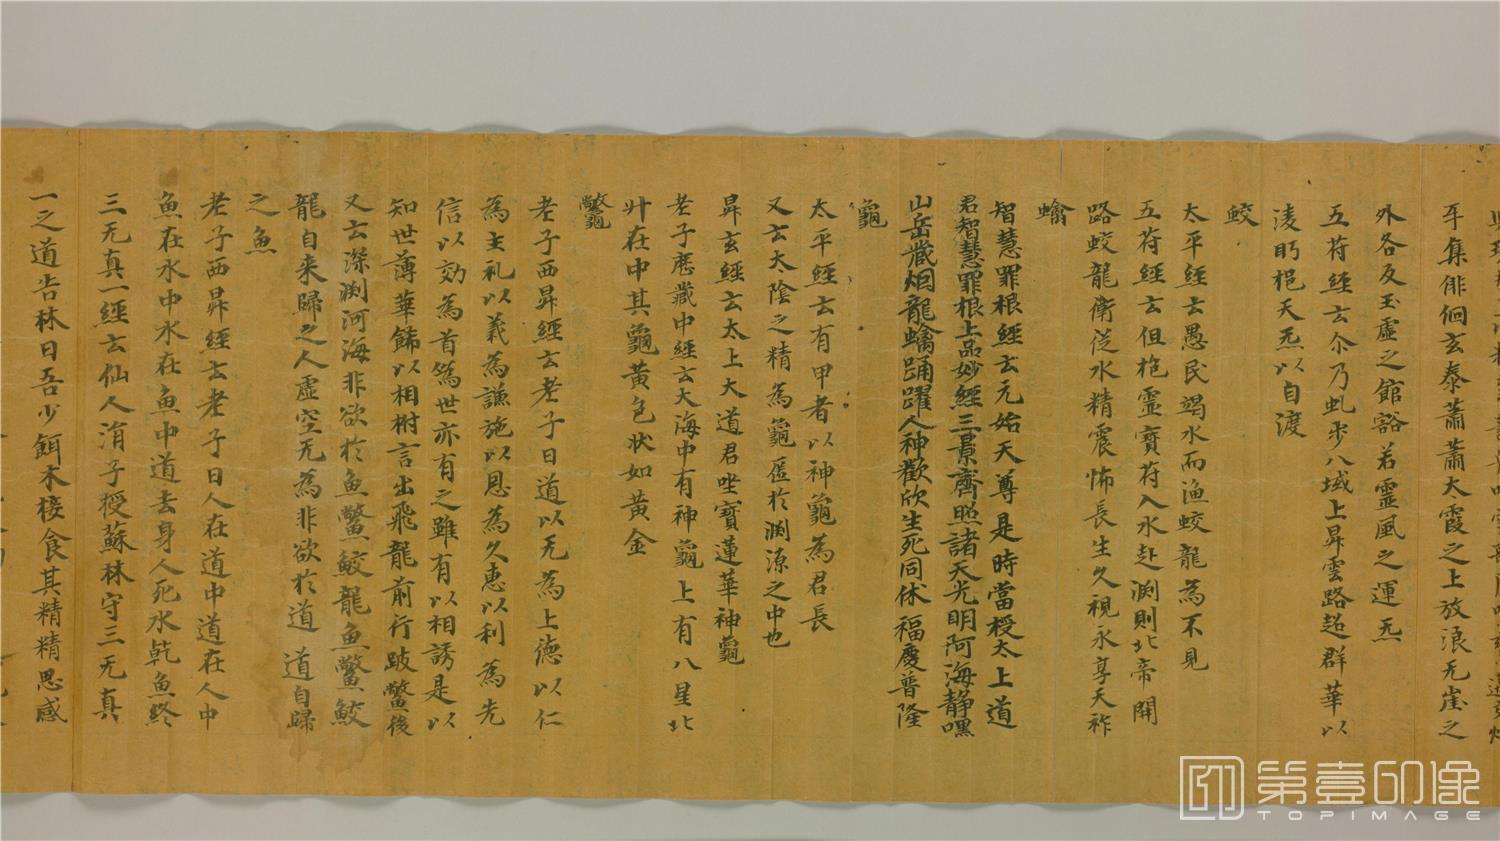 耳集俳佪玄泰蕭蕭大霞之上放浪无崖之
外各反玉虛之館豁若靈風之運炁
五苻經云尒乃虬步八域上昇雲路超群華以
淩眄挹天炁以自渡
蛟
太平經云愚民竭水而漁蛟龍為不見
五苻經云但抱靈寶苻入水赴渕則北帝開
路蛟龍衛從水精震怖長生久視永享天祚
蟕
智慧罪根經云元始天尊是時當授太上道
君智慧罪根上品妙經三景齊照諸天光明河海靜嘿
山岳藏烟龍蟕踊躍人神歡欣生死同休福慶普隆
龜
太平經云有甲者以神龜為君長
又云太陰之精為龜匿於渕源之中也
昇玄經云太上大道君坐寶蓮華神龜
老子歷藏中經云大海中有神龜上有八星北
斗在中其龜黃色狀如黃金
鼈
老子西昇經云老子曰道以无為上德以仁
為主礼以義為謙施以恩為久惠以利為先
信以効為首篤世亦有之雖有以相誘是以
知世薄華飾以相樹言出飛龍前行跛鱉後
又云深渕河海非欲於魚鱉鮫龍魚鱉鮫
龍自来歸之人虛空无為非欲於道道自歸
之魚
老子西昇經云老子曰人在道中道在人中
魚在水中水在魚中道去身人死水乾魚終
三元真一經云仙人涓子授蘇林守三元真
一之道告林曰吾少餌术接食其精精思感
第壹印像
TOPIMAGE